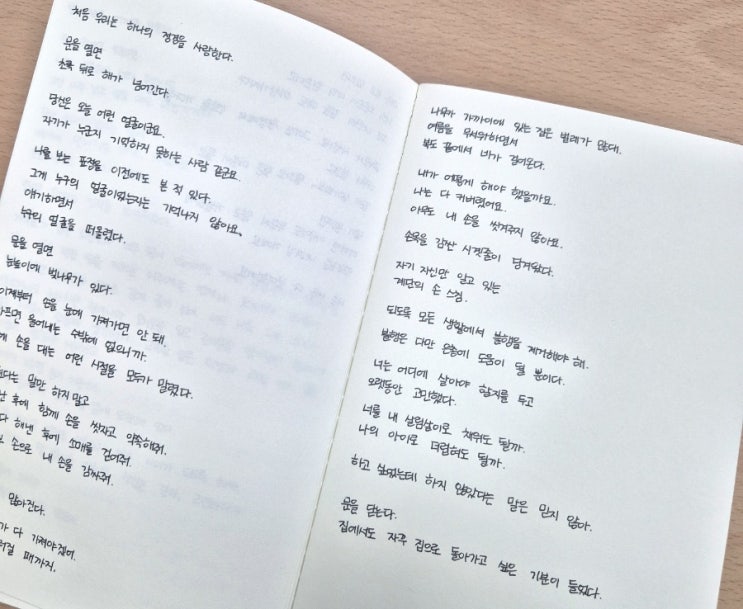 처음 우리는 하나의 정경을 사랑한다.
문을 열면
초록 뒤로 해가 넘어간다.
당신은 오늘 어떤 얼굴이군요.
자기가 누군지 기억하지 못하는 사람 같군요.
나를 보는 표정을 이전에도 본 적 있다.
그게 누구의 얼굴이었는지는 기억나지 않아요.
얘기하면서
누구의 얼굴을 떠올렸다.
문을 열면
눈높이에 벚나무가 있다.
이제부터 손을 눈에 가져가면 안 돼.
울어내는 수밖에 없으니까.
손을 대는 어린 시절을 모두가 말렸다.
말만 하지 말고
후에 함께 손을 씻자고 약속해줘.
해낸 후에 소매를 걷어줘.
손으로 내 손을 감싸줘.
많아진다.
다 가져야겠어.
때까지.
나무가 가까이에 있는 집은 벌레가 많대.
여름을 무서워하면서
복도 끝에서 네가 걸어온다.
내가 어떻게 해야 했을까요.
나는 다 커버렸어요.
아무도 내 손을 씻겨주지 않아요.
손목을 감싼 시곗줄이 당겨왔다.
자기 자신만 알고 있는
계단의 손 스침.
되도록 모든 생활에서 불행을 제거해야 해.
불행은 다만 운동에 도움이 될 뿐이다.
너는 어디에 살아야 할지를 두고
오랫동안 고민했다.
너를 내 살림살이로 채워도 될까.
나의 아이로 더럽혀도 될까.
하고 싶었는데 하지 않았다는 말은 믿지 않아.
문을 닫는다.
집에서도 자주 집으로 돌아가고 싶은 기분이 들었다.